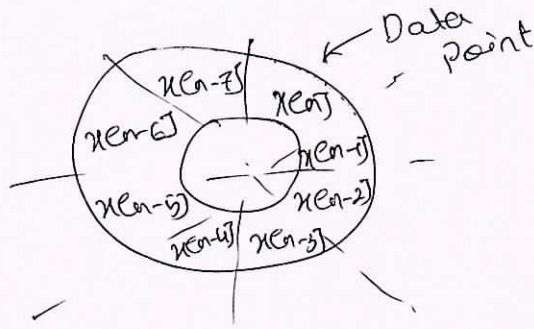 Data
Point
x[n-7]
x[n]
x[n-6]
x[n-1]
x[n-5]
x[n-2]
x[n-4]
x[n-3]